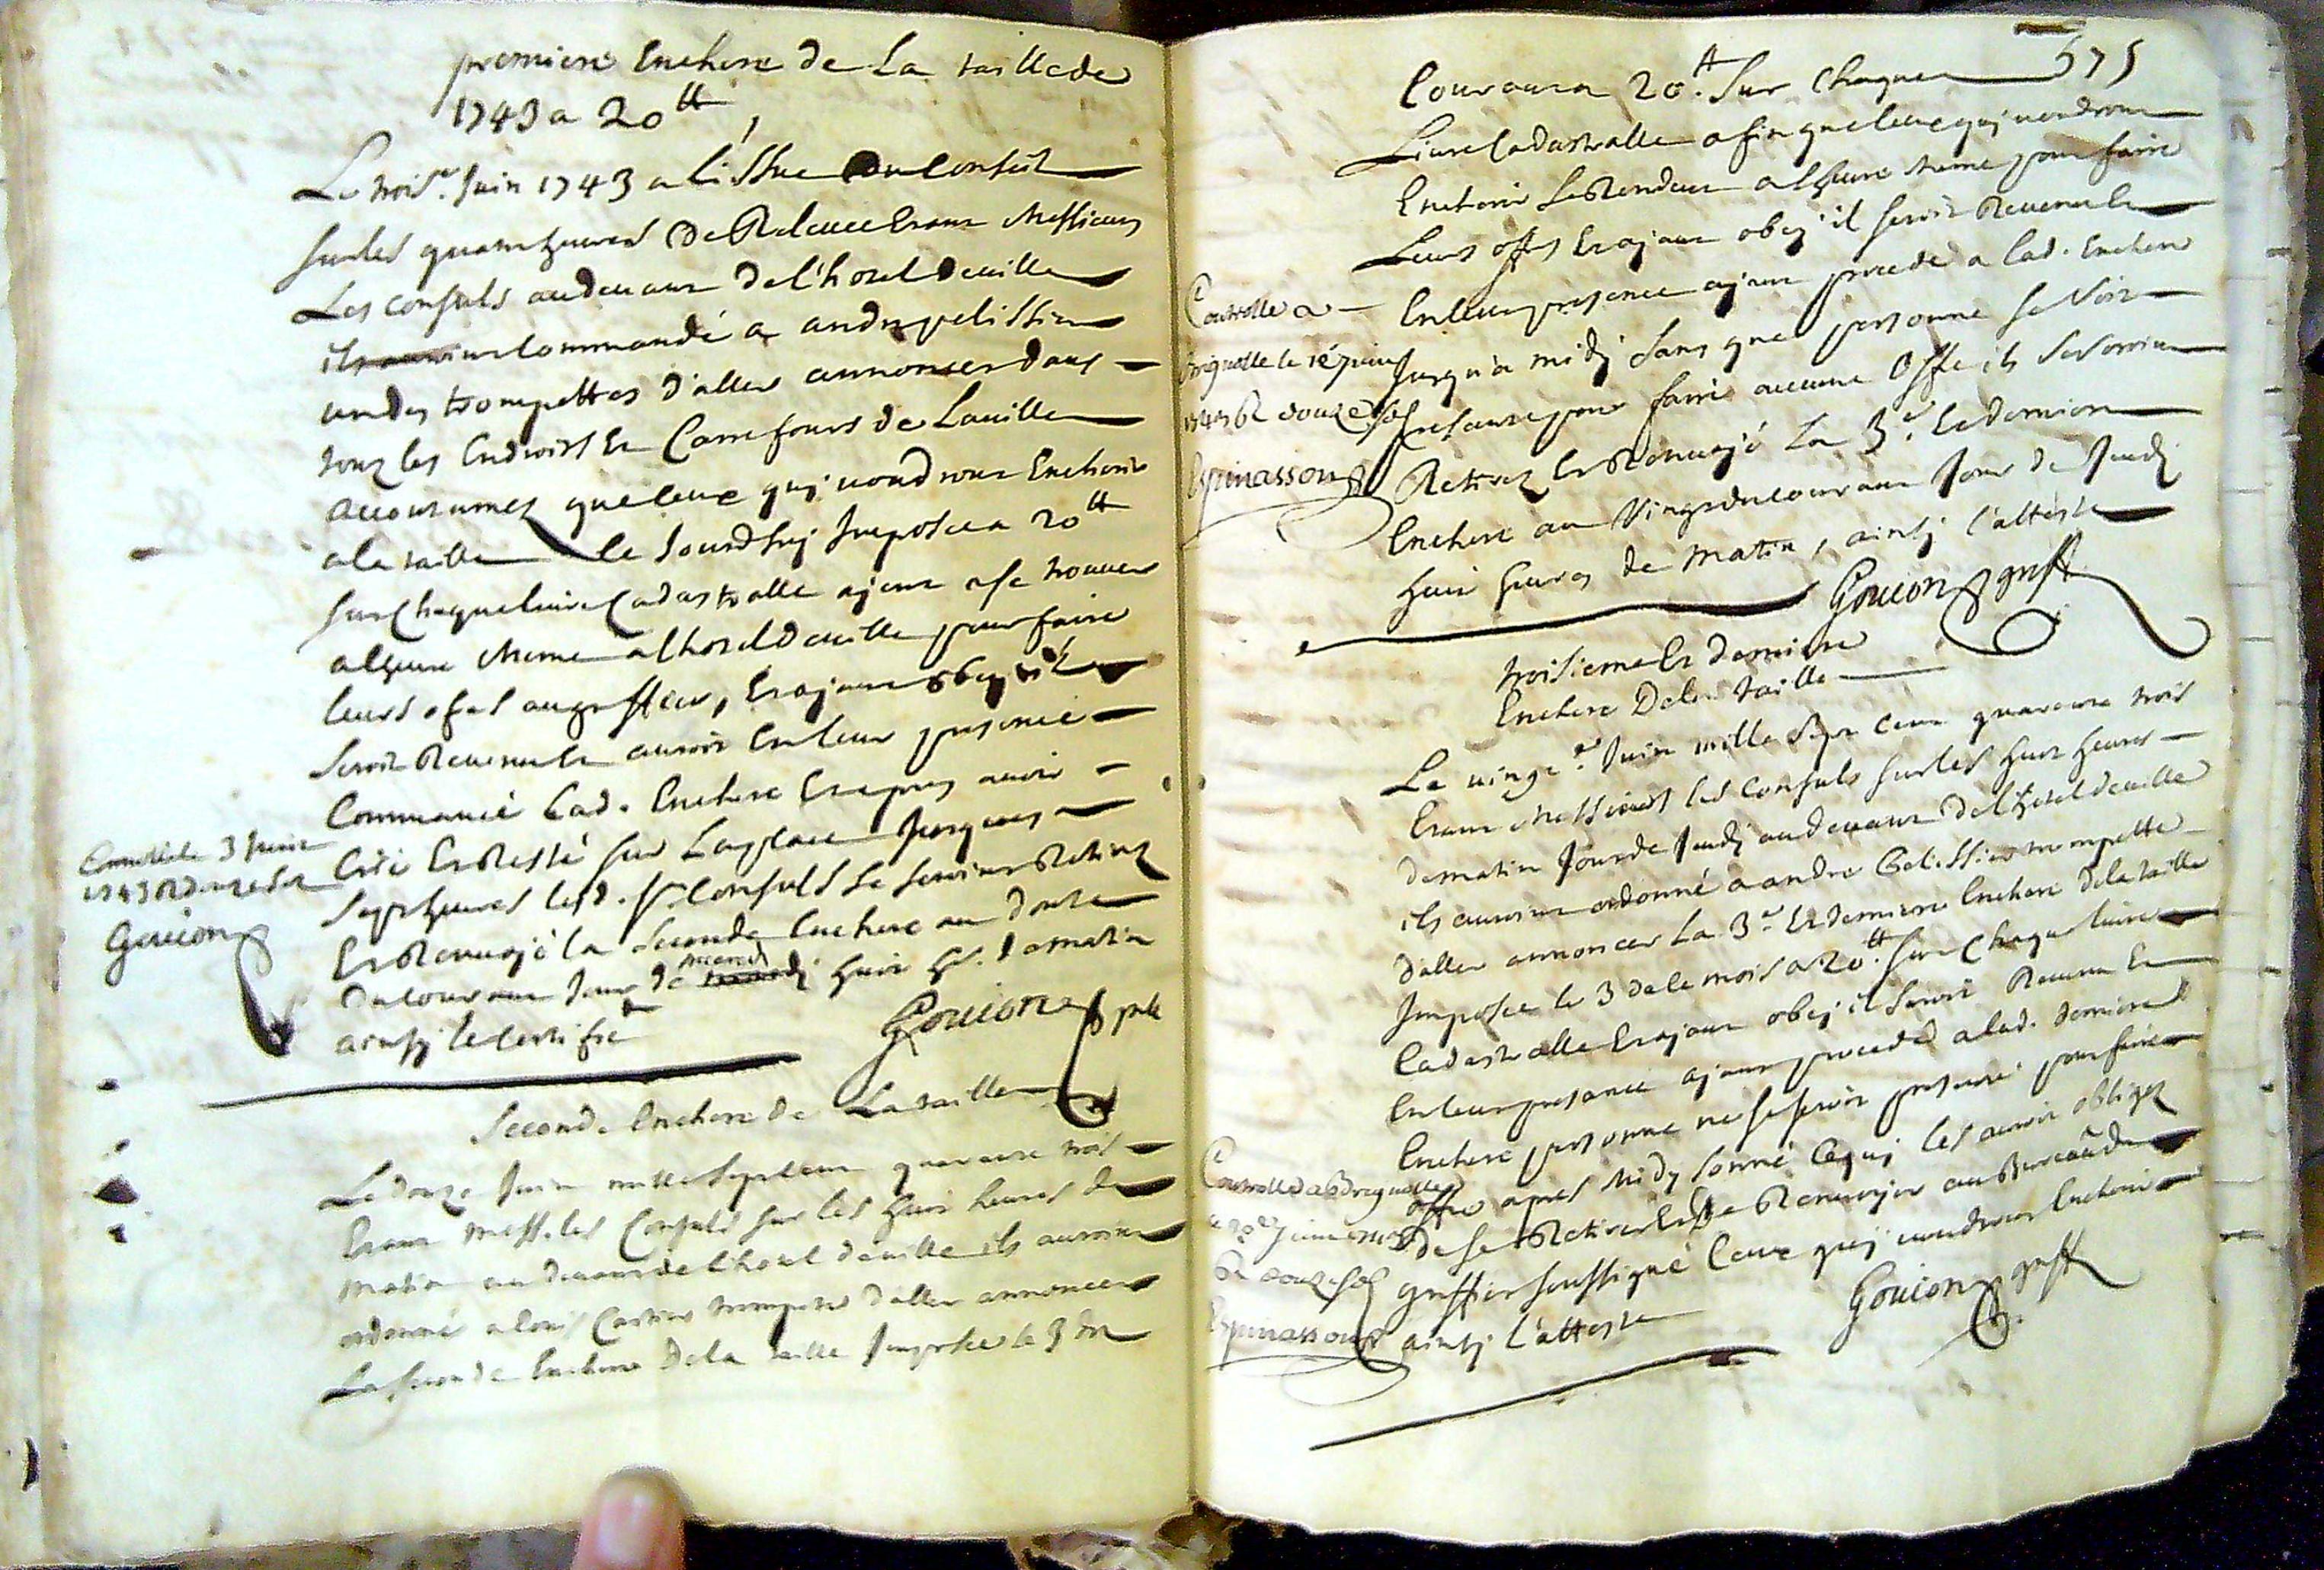 premiere Enchere de La taille de
1743 a 20tt
Le trois.e Juin 1743 a l'issue du Conseil
sur les quatre heures de Relevée Etant Messieurs
Les consuls au devant de l'hotel de ville
ils auroint Commandé a andre pelissier
un des trompettes d'aller annoncer dans
tous les Endroits Et Carrefours de La ville
accoutumez que ceux quj voudront Encherir
a la taille ce Jourdhuj Imposée a 20tt
sur chaque livre Cadastralle ajent a se trouver
a l'heure meme a l'hotel de ville pour faire
leurs ofres au greffier, Et ajant obej il
seroit Revenu Et auroit En leur presence
Commancé Lad. Enchere Et apres avoir
Crié Et Resté sur La place Jusques
sept heures lesd. srs Consuls se seroint Retirez
Et Renvoyé la seconde Enchere au douze
du Courant Jour de mecredj huit hs. du matin
ainsj le certifie
Gouion greff
Controlle le 3 Juin
1743 R douze sols
Gouion
Seconde Enchere de La taille
Le douze Juin mille sept cent quarante trois
Etant mess. les Consuls sur les huit heures du
matin au devant de l'hotel de ville ils auroint
ordonné a Louis Castier trompette d'aller annoncer
La seconde Enchere de la taille Imposée le 3 du
575
Courant a 20tt. sur chaque
Livre Cadastralle afin que ceux quj voudront
Encherir se Rendent a l'heure meme pour faire
Leurs offres Et ajant obej il seroit Revenu Et
En leur presence ajant procedé a lad. Enchere
Jusqu'a midj sans que personne se soit
presanté pour faire aucune offre ils se seroint
Retirez Et Renvoyé La 3.e Et derniere
Enchere au Vingt du courant Jour de Jeudj
huit heures de matin, ainsj l'atteste
Gouion greff
Controlle a
Brignolle le 12 juin
1743 R douze sols
Espinasson
troisieme Et derniere
Enchere De la taille
Le vingt.e Juin mille sept cent quarante trois
Etant Messieurs les Consuls sur les huit heures
de matin Jour de Jeudj au devant de l'hotel de ville
ils auroint ordonné a andre Pelissier trompette
d'aller annoncer La 3.e Et derniere Enchere de la taille
Imposée le 3 de ce mois a 20tt. sur Chaque livre
Cadastralle Et ajant obej il seroit Revenu Et
En leur presance ajant procedé a lad. derniere
Enchere personne ne se seroit presanté pour faire
offre apres Midy sonné Ce quj les auroit obligez
de se Retirer Et de Renvoyer au Bureau du
greffier soussigné Ceux quj voudront Encherir
ainsj l'atteste
Gouion greff
Controlle a Brignolle
le 20e Juin 1743
R douze sols
Espinasson